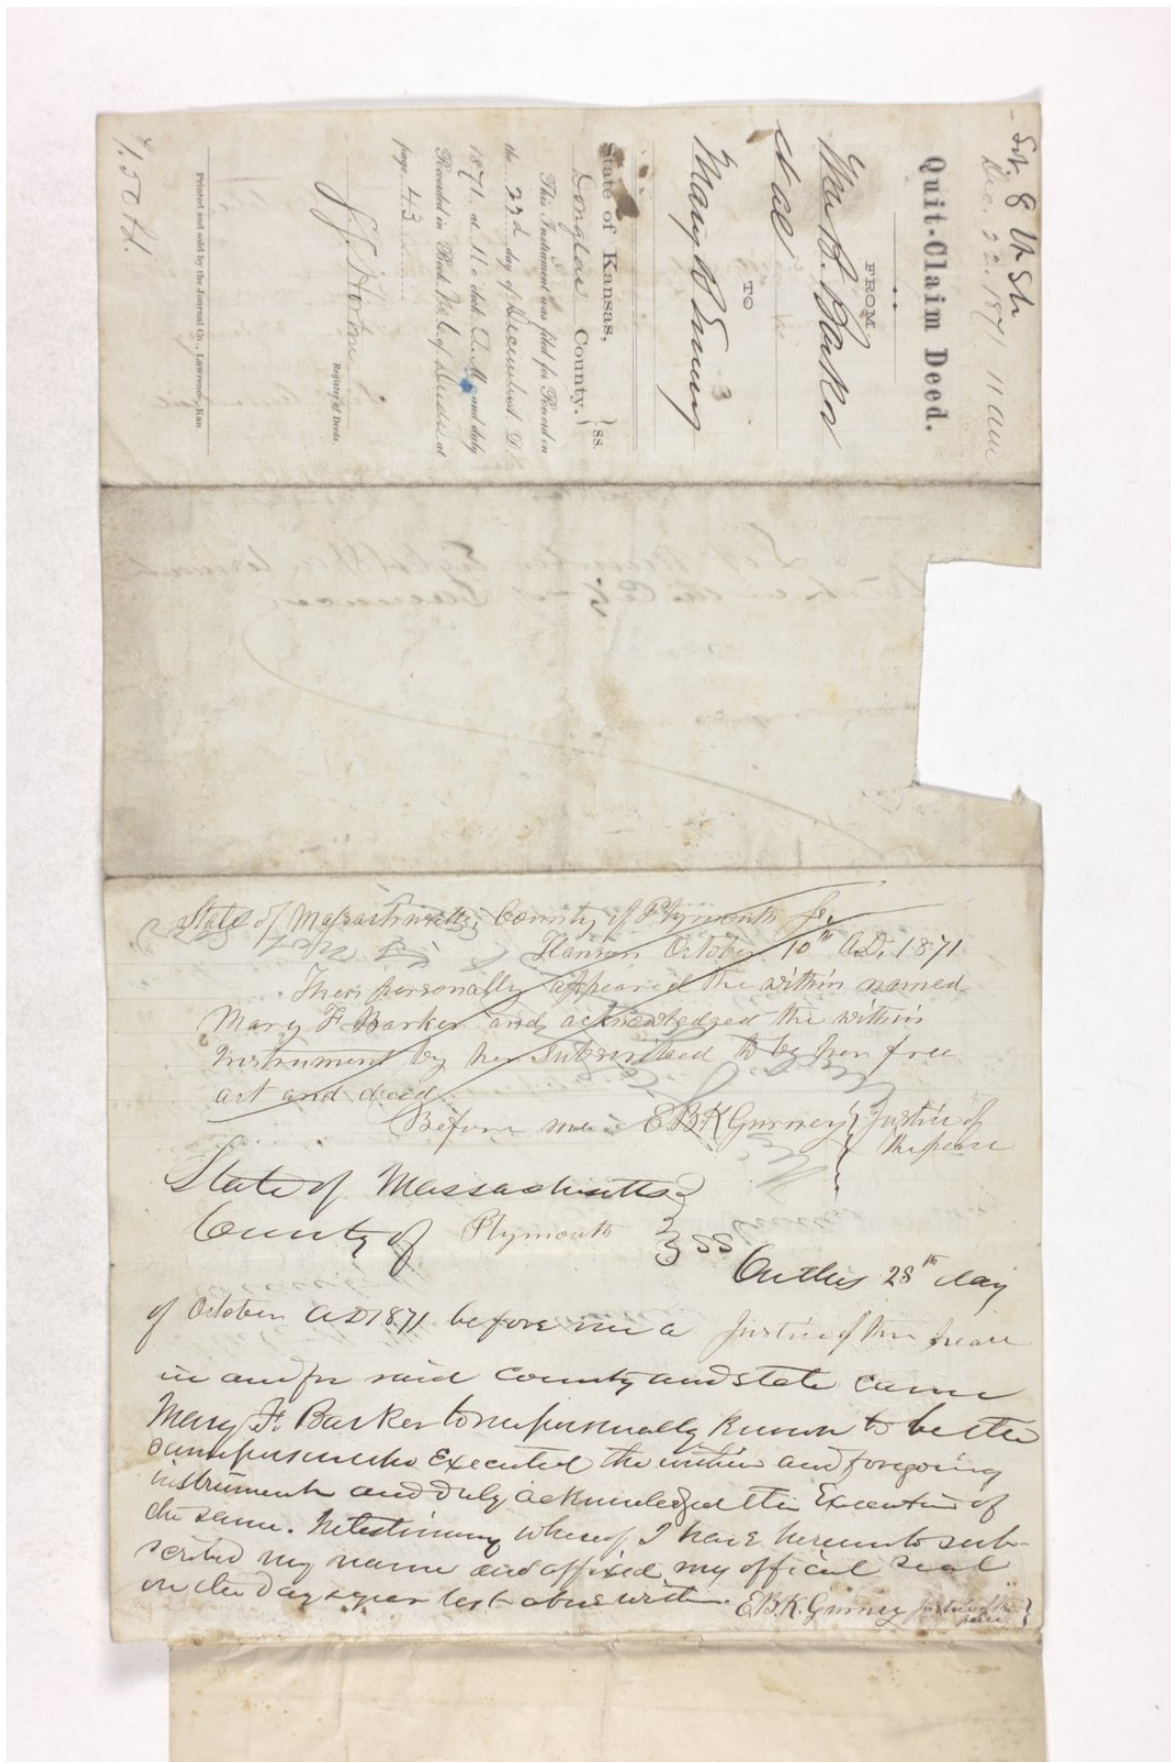 Dec. 22. 1871 11 am
Quit-Claim Deed.
FROM
Wm B. Barker
et al
TO
Mary B Emery
3
State of Kansas,
Douglas County. } ss.
This Instrument was filed for Record on
the 22d day of December A. D.
1871. at 11 o'clock A. M. and duly
Recorded in Book No 6. of Deeds at
page 43
Register of Deeds.
Printed and sold by the Journal Co., Lawrence, Kan.
State of Massachusetts, County of Plymouth ss.
Hanson October 10th A.D. 1871
Then personally appeared the within named
Mary F. Barker and acknowledged the within
instrument by her subscribed to be her free
act and deed.
Before me E.B.K. Gurney } Justice of
the peace
State of Massachusetts }
County of Plymouth } SS
On this 28th day
of October AD 1871 before me a Justice of the peace
in and for said county and state came
Mary F. Barker to me personally known to be the
same person who Executed the within and foregoing
instrument and duly acknowledged the Execution of
the same. In testimony whereof, I have hereunto sub-
scribed my name and affixed my official seal
on the day & year last above written. E.B.K. Gurney Justice of the
peace }